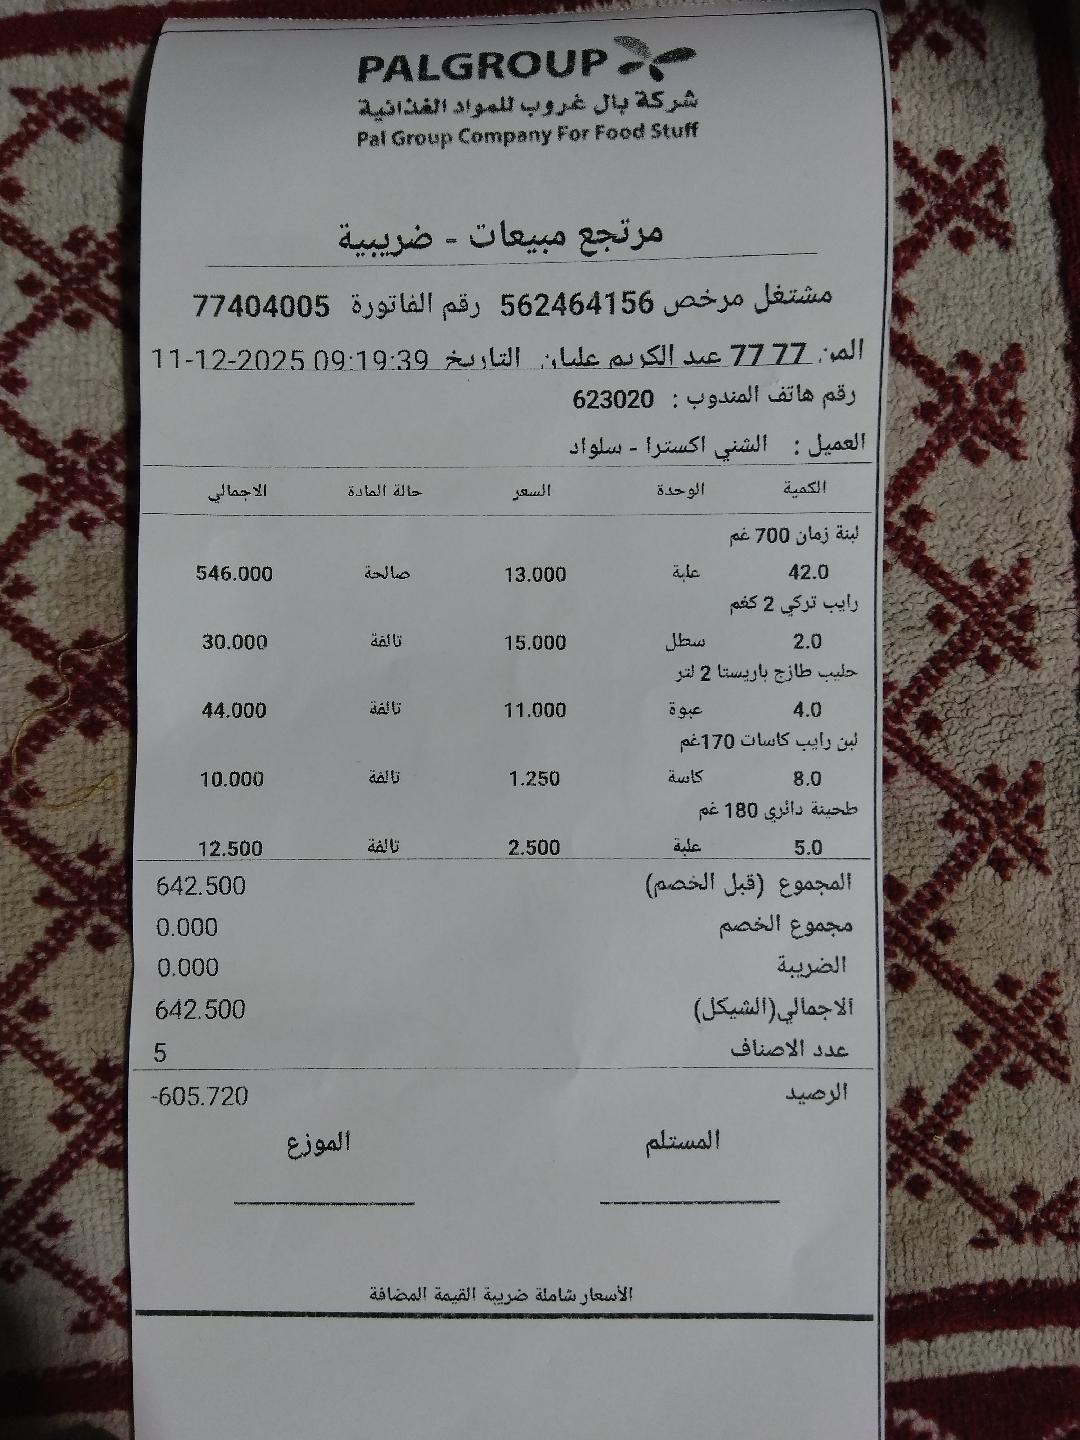 PALGROUP
شركة بال غروب للمواد الغذائية
Pal Group Company For Food Stuff
مرتجع مبيعات - ضريبية
مشتغل مرخص 562464156 رقم الفاتورة 77404005
77 77 عبد الكريم عليان التاريخ 11-12-2025 09:19:39
رقم هاتف المندوب : 623020
العميل : الشني اكسترا - سلواد
الكمية الوحدة السعر حالة المادة الاجمالي
لبنة زمان 700 غم
42.0 علبة 13.000 صالحة 546.000
رايب تركي 2 كغم
2.0 سطل 15.000 تالفة 30.000
حليب طازج باريستا 2 لتر
4.0 عبوة 11.000 تالفة 44.000
لبن رايب كاسات 170غم
8.0 كاسة 1.250 تالفة 10.000
طحينة دائري 180 غم
5.0 علبة 2.500 تالفة 12.500
المجموع (قبل الخصم) 642.500
مجموع الخصم 0.000
الضريبة 0.000
الاجمالي(الشيكل) 642.500
عدد الاصناف 5
الرصيد -605.720
المستلم الموزع
الأسعار شاملة ضريبة القيمة المضافة